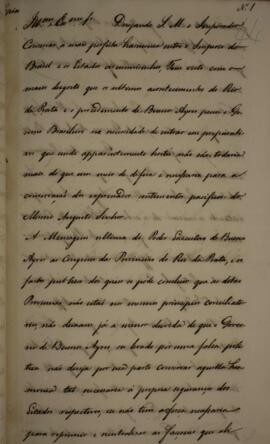 Cópia
N.º 1
Illmo. Exmo. Sr. Dezejando S. M. o Imperador
Conservar a mais perfeita harmonia entre o Imperio do
Brasil e os Estados circumvisinhos, tem visto com o
maior desgosto que os ultimos acontecimentos do Rio
da Prata, e o procedimento de Buenos Ayres para o Go-
verno Brasileiro na necessidade de entrar em preparati-
que onde apparentemente hostis não são todavia
mais do que um meio de defeza e necessaria para a
dos expressados sentimentos pacificos do
Mesmo Augusto Senhor.
A Mensagem ultima do Poder Executivo de Buenos
Ayres ao Congresso das Provincias do Rio da Prata, e os
factos posteriores dos quaes se póde concluir que as ditas
Provincias não estão no mesmo principio conciliato-
rio, não deixam já a menor duvida de que o Gover-
no de Buenos Ayres, ou levado por uma falsa poli-
tica não deseja por sua parte conservar aquella har-
monia tão necessaria á propria segurança dos
Estados respectivos, ou não tem a força necessaria
para reprimir e neutralisar as facções que